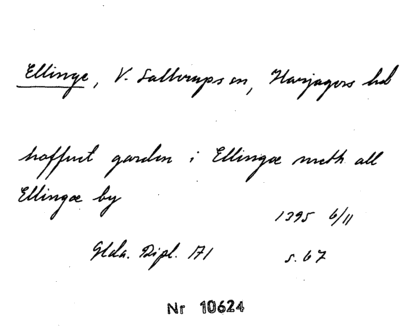 Ellinge, V. Sallerups sn, Harjagers hd
hoffuit garden i Ellingæ meth all
Ellingæ by
1395 6/11
Glda. Dipl. A1
s. 67
Nr 10624